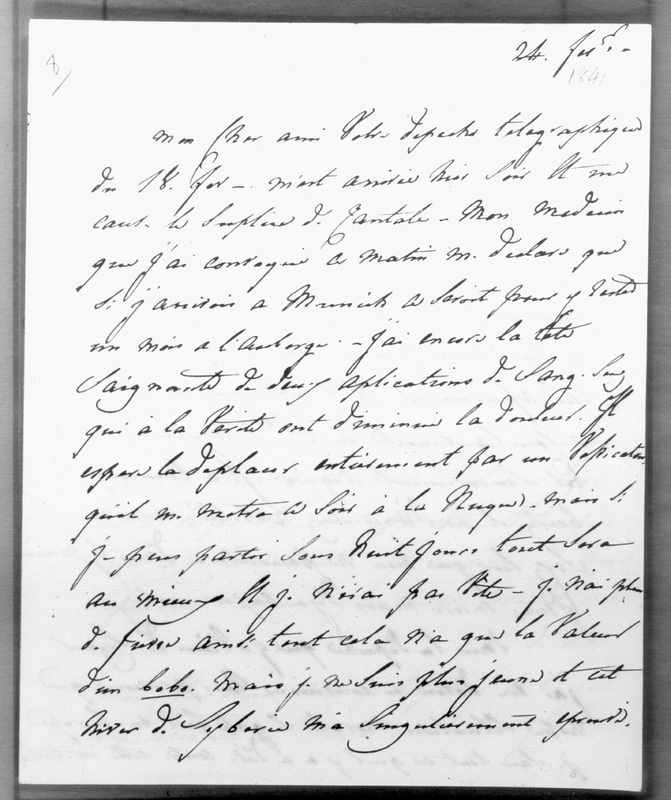 8/
24. fer. -
1841
mon cher ami Votre depeche telegraphique
du 18. fer -. m'est arrivée hier soir Et me
cause le suplice de Tantale - Mon medecin
que j'ai convoqué ce matin me declare que
si j'arrivois a Munich ce seroit pour y rester
un mois a l'auberge. - j'ai encore la tête
saignante de deux aplications de Sang-Sues
qui à la Verité ont diminué la douleur. Il
espere la deplacer entièrement par un Vesicatoire
qu'il me mettra ce soir à la Nuque. mais si
je peux partir sous huit jours tout sera
au mieux Et je n'irai pas Vite - je n'ai plus
de fievre ainsi tout cela n'a que la Valeur
d'un bobo. Mais je ne suis plus jeune et cet
hiver de Syberie m'a singulièrement eprouvé.